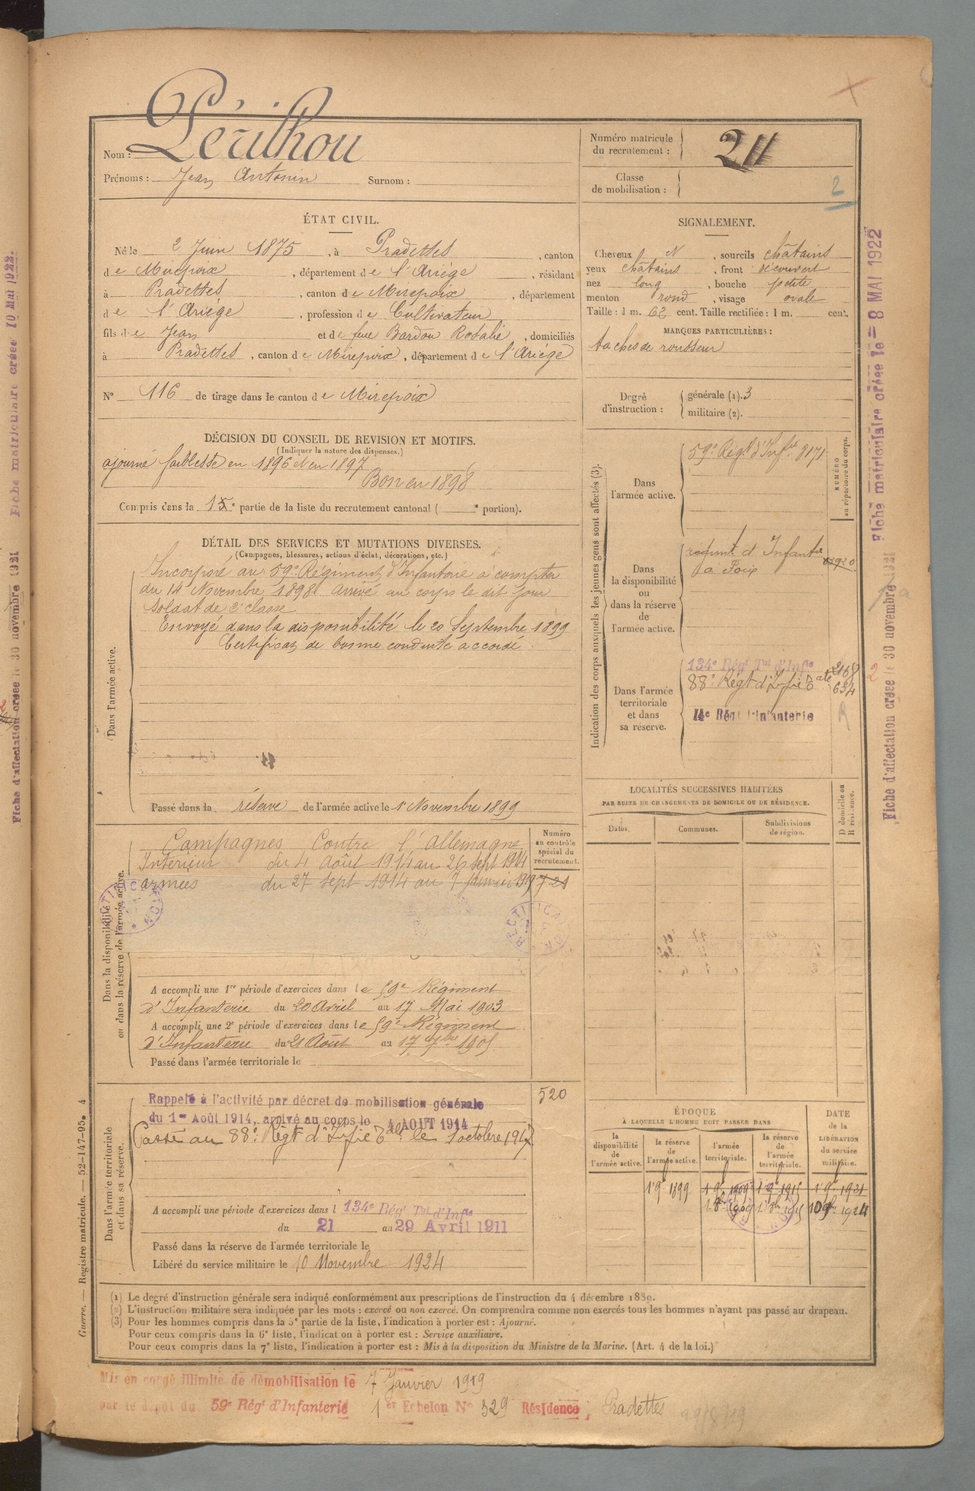 Nom : Périlhou
Prénoms : Jean Antonin Surnom :
Numéro matricule
du recrutement : 211
Classe
de mobilisation :
2
ÉTAT CIVIL.
Né le 2 Juin 1875, à Pradettes, canton
de Mirepoix, département de l'Ariège, résidant
à Pradettes, canton de Mirepoix, département
de l'Ariège, profession de Cultivateur
fils de Jean et de feue Bardou Rosalie, domiciliés
à Pradettes, canton de Mirepoix, département de l'Ariège
N° 116 de tirage dans le canton de Mirepoix
SIGNALEMENT.
Cheveux N, sourcils châtains
yeux châtains, front découvert
nez long, bouche petite
menton rond, visage ovale
Taille : 1 m. 62 cent. Taille rectifiée : 1 m. cent.
MARQUES PARTICULIÈRES :
taches de rousseur
Degré
d'instruction :
générale (1). 3
militaire (2).
DÉCISION DU CONSEIL DE REVISION ET MOTIFS.
(Indiquer la nature des dispenses.)
ajourné faiblesse en 1896 et en 1897
Bon en 1898
Compris dans la 1e partie de la liste du recrutement cantonal ( e portion).
DÉTAIL DES SERVICES ET MUTATIONS DIVERSES.
(Campagnes, blessures, actions d'éclat, décorations, etc.)
Dans l'armée active.
Incorporé au 59e Régiment d'Infanterie à compter
du 14 Novembre 1898 Arrivé au corps le dit jour
soldat de 2e classe
Envoyé dans la disponibilité le 20 Septembre 1899
Certificat de bonne conduite accordé
Passé dans la réserve de l'armée active le 1 Novembre 1899
Indication des corps auxquels les jeunes gens sont affectés (3).
NUMÉRO
au répertoire du corps.
Dans
l'armée active.
59e Régt d'Infie 8171
Dans
la disponibilité
ou
dans la réserve
de
l'armée active.
régimt d'Infanterie
de Foix
Dans l'armée
territoriale
et dans
sa réserve.
134e Régt Tal d'Infie
88e Régt d'Infie Tale 634
14e Régt d'Infanterie
LOCALITÉS SUCCESSIVES HABITÉES
PAR SUITE DE CHANGEMENTS DE DOMICILE OU DE RÉSIDENCE.
Dates.
Communes.
Subdivisions
de région.
D domicile ou
R résidence.
Dans la disponibilité
ou dans la réserve de l'armée active.
Numéro
au contrôle
spécial du
recrutement.
Campagnes Contre l'Allemagne
Intérieur du 4 Août 1914 au 26 sept 1914
armées du 27 sept 1914 au 7 janvier 19
RECTIFICATION
RECTIFICATION
A accompli une 1re période d'exercices dans le 59e Régiment
d'Infanterie du 20 Avril au 17 Mai 1903
A accompli une 2e période d'exercices dans le 59e Régiment
d'Infanterie du 21 Août au 17 7bre 1905
Passé dans l'armée territoriale le
Dans l'armée territoriale
et dans sa réserve.
520
Rappelé à l'activité par décret de mobilisation générale
du 1er Août 1914, arrivé au corps le 4 AOUT 1914
Passé au 88e Régt d'Infie Tale le 1 octobre 1917
A accompli une période d'exercices dans l 134e Régt Tal d'Infie
du 21 au 29 Avril 1911
Passé dans la réserve de l'armée territoriale le
Libéré du service militaire le 10 Novembre 1924
ÉPOQUE
À LAQUELLE L'HOMME DOIT PASSER DANS
la
disponibilité
de
l'armée active.
la réserve
de
l'armée active.
l'armée
territoriale.
la réserve
de l'armée
territoriale.
DATE
de la
LIBÉRATION
du service
militaire.
1 9bre 1899
1 9bre 1909
1 9bre 1915
1 9bre 1921
10 9bre 1924
(1) Le degré d'instruction générale sera indiqué conformément aux prescriptions de l'instruction du 4 décembre 1889.
(2) L'instruction militaire sera indiquée par les mots : exercé ou non exercé. On comprendra comme non exercés tous les hommes n'ayant pas passé au drapeau.
(3) Pour les hommes compris dans la 5e partie de la liste, l'indication à porter est : Ajourné.
Pour ceux compris dans la 6e liste, l'indication à porter est : Service auxiliaire.
Pour ceux compris dans la 7e liste, l'indication à porter est : Mis à la disposition du Ministre de la Marine. (Art. 4 de la loi.)
Guerre. — Registre matricule. — 52-147-95. 4
Mis en congé illimité de démobilisation le 7 Janvier 1919
par le dépôt du 59e Régt d'Infanterie 1er Echelon N° 329 Résidence ; Pradettes
Fiche matriculaire créée le = 8 MAI 1922
Fiche d'affectation créée le 30 novembre 1921
Fiche matriculaire créée 10 Mai 1922.
Fiche d'affectation créée le 30 novembre 1921